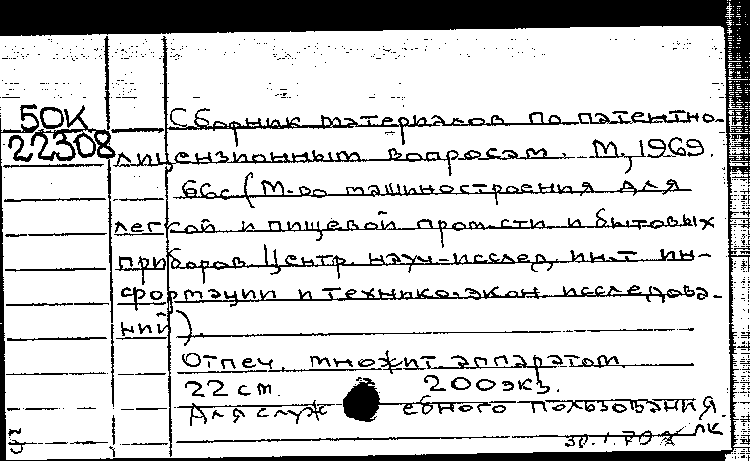 50К Сборник материалов по патентно-
22308 лицензионным вопросам. М., 1969.
66с (М-во машиностроения для
легкой и пищевой пром-сти и бытовых
приборов Центр. науч-исслед, ин-т ин-
формации и технико-экон. исследова-
ний).
Отпеч. множит. аппаратом
22 см. 200экз.
Для служебного пользования.
30.1.70 лк